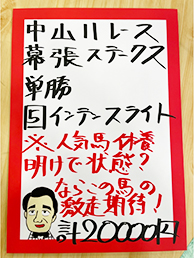 中山11レース
幕張ステークス
単勝
5インテンスライト
※人気馬休養
明けで状態?
ならこの馬の
激走期待!
計20000円